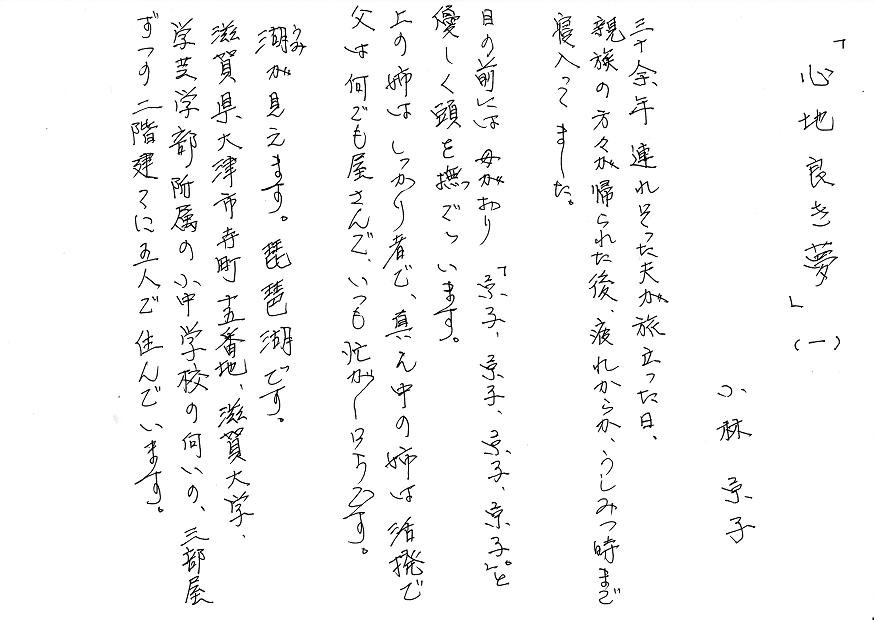 「心地良き夢」（一）
小林 京子
三十余年 連れ兄った夫が旅立った日、
親族の方々が帰られた後、疲れからか、うしみつ時まで
寝入ってました。
目の前には母がおり「京子、京子、京子、京子」と
優しく頭を撫でています。
上の姉はしっかり者で、真ん中の姉は活撥で
父は何でも屋さんで、いつも忙が
湖が見えます。琵琶湖です。
うみ
滋賀県大津市寺町十五番地、滋賀大学、
学芸学部附属の小中学校の向いの、三部屋
ずつの二階建てに五人で住んでいます。